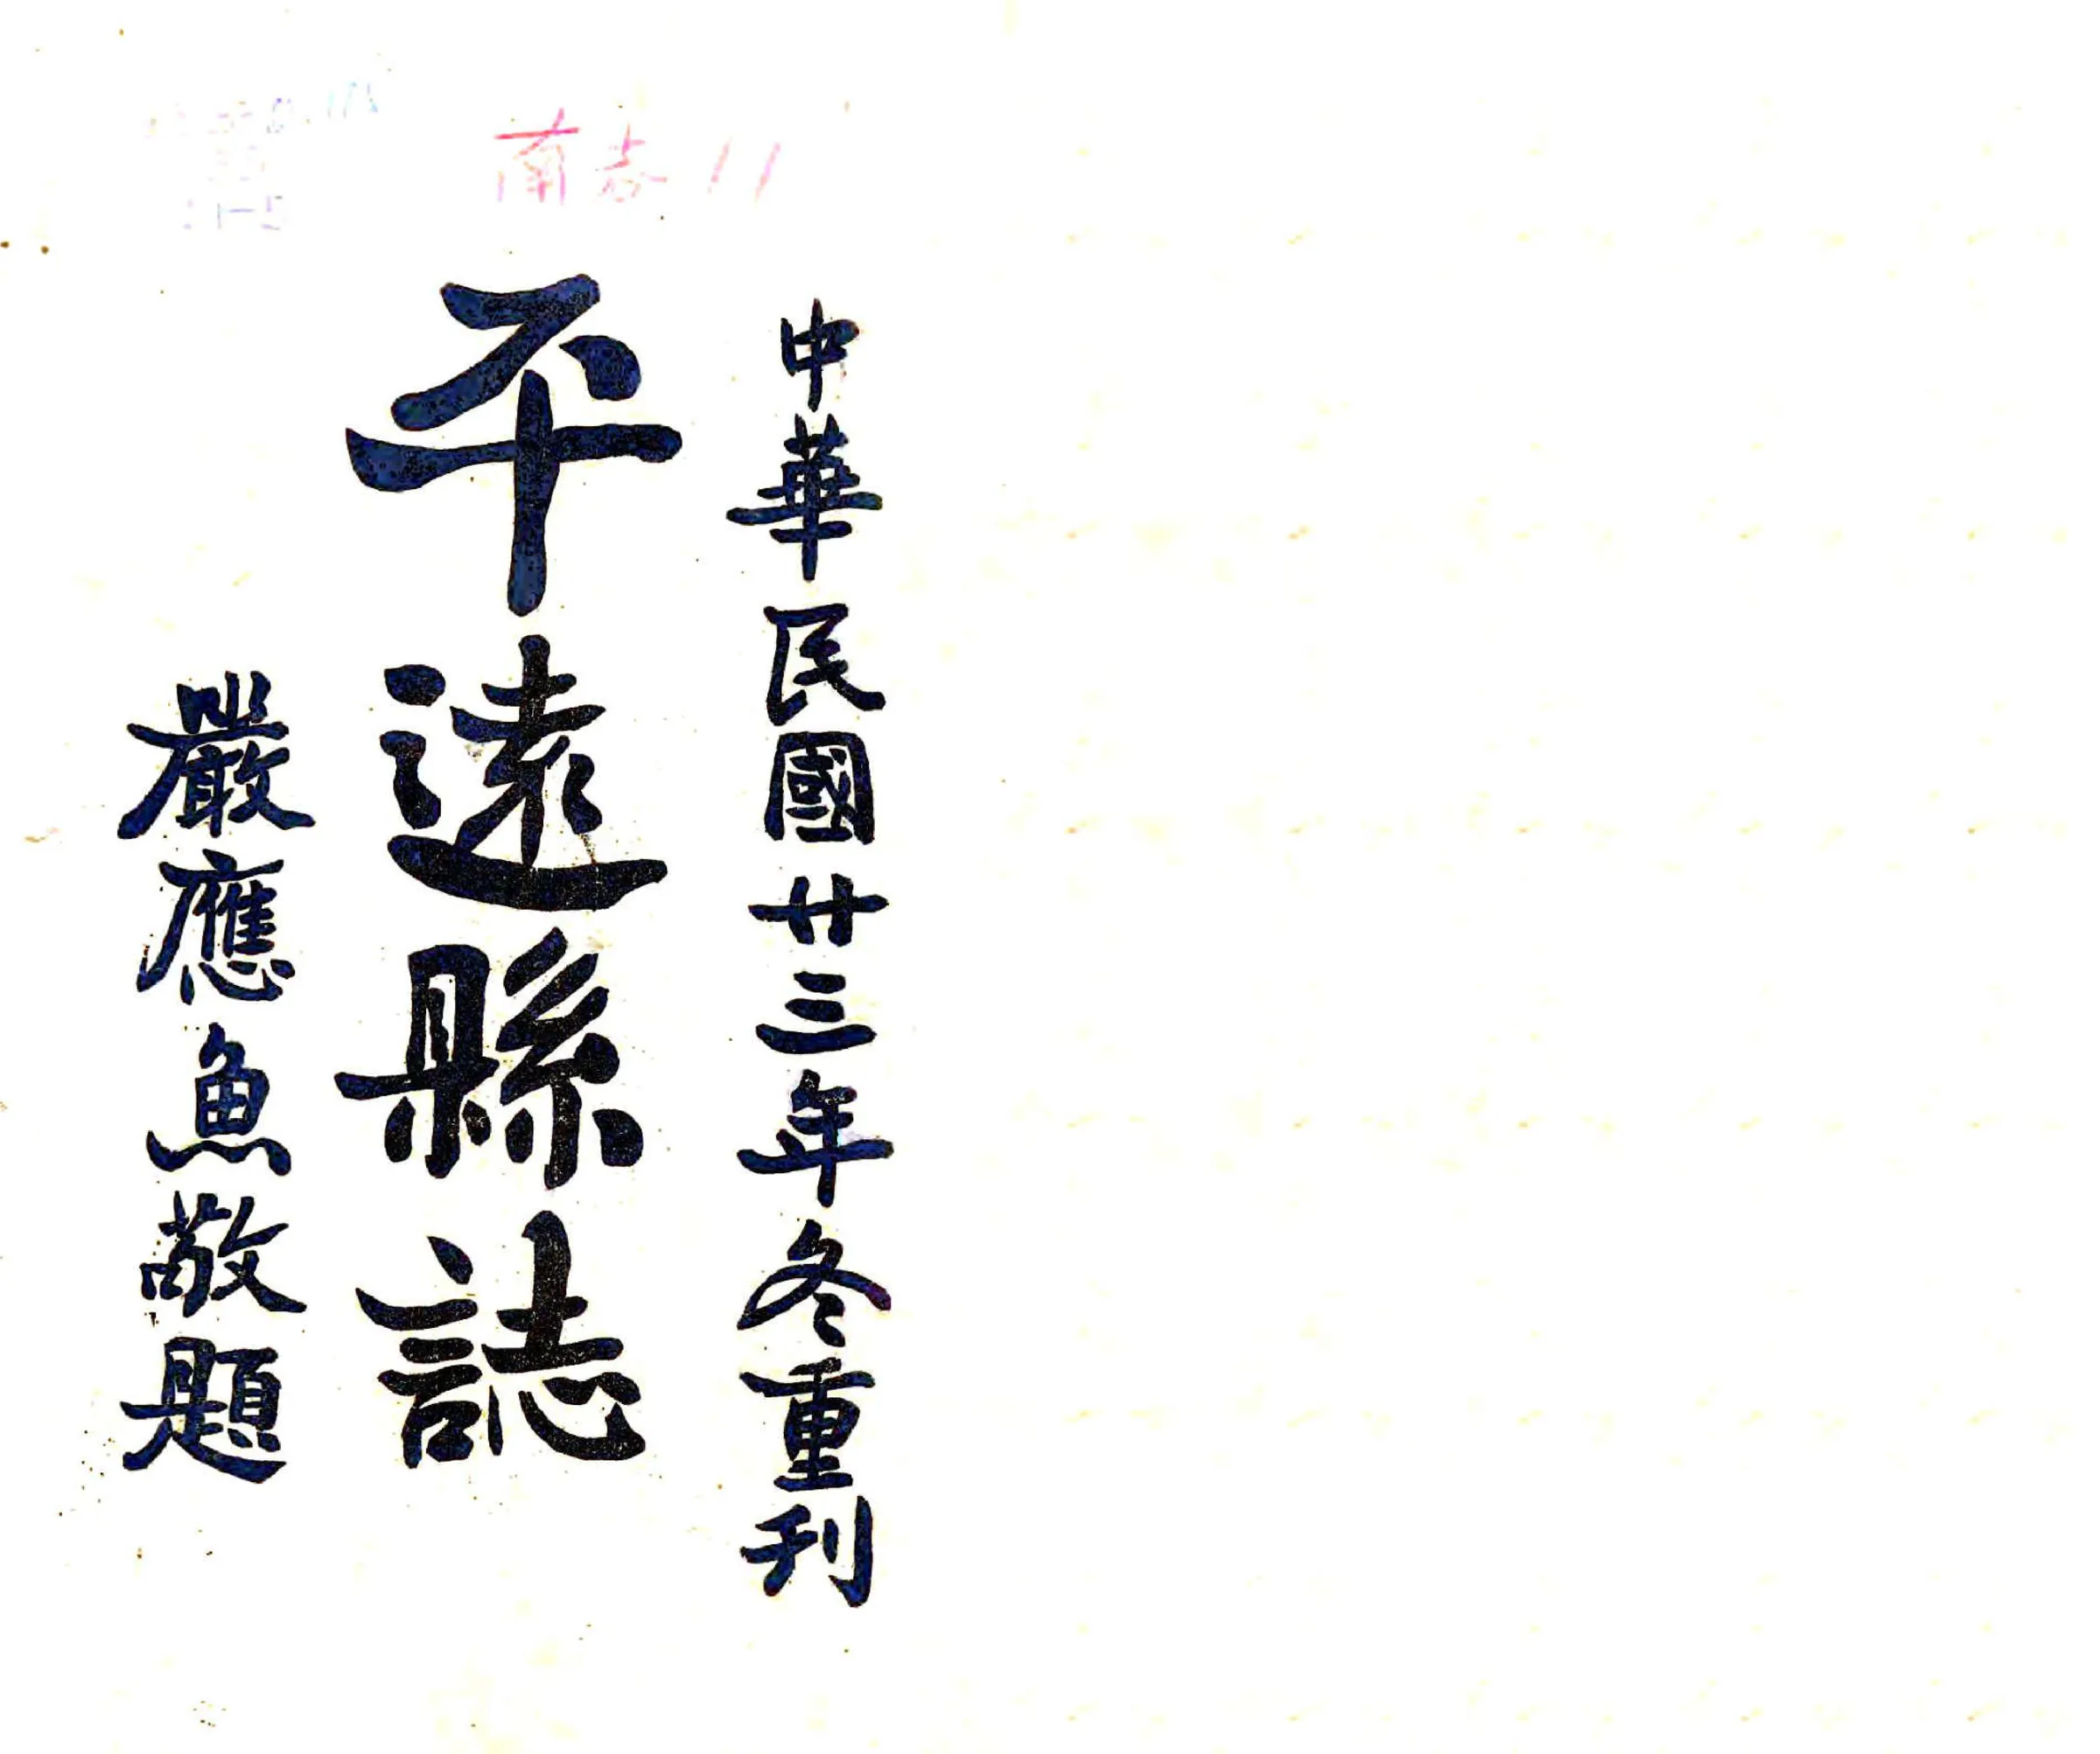 中華民國廿三年冬重刊
平遠縣誌
嚴應魚敬題